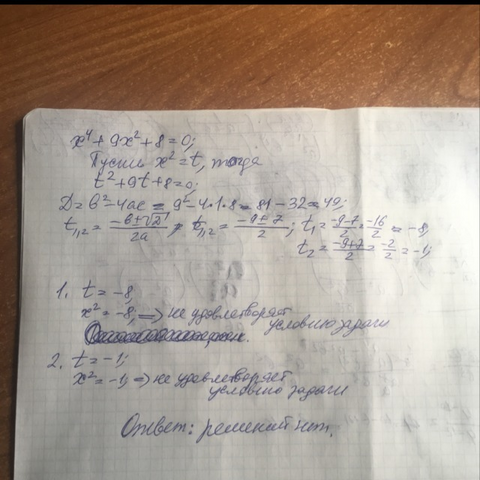 x⁴+9x²+8=0;
Пусть x²=t, тогда
t²+9t+8=0;
D=b²-4ac=9²-4·1·8=81-32=49;
t₁,₂=(-b±√D)/2a; t₁,₂=(-9±7)/2; t₁=(-9-7)/2=-16/2=-8;
t₂=(-9+7)/2=-2/2=-1;
1. t=-8;
x²=-8; ⇒ не удовлетворяет
условию задачи
2. t=-1;
x²=-1; ⇒ не удовлетворяет
условию задачи
Ответ: решений нет.